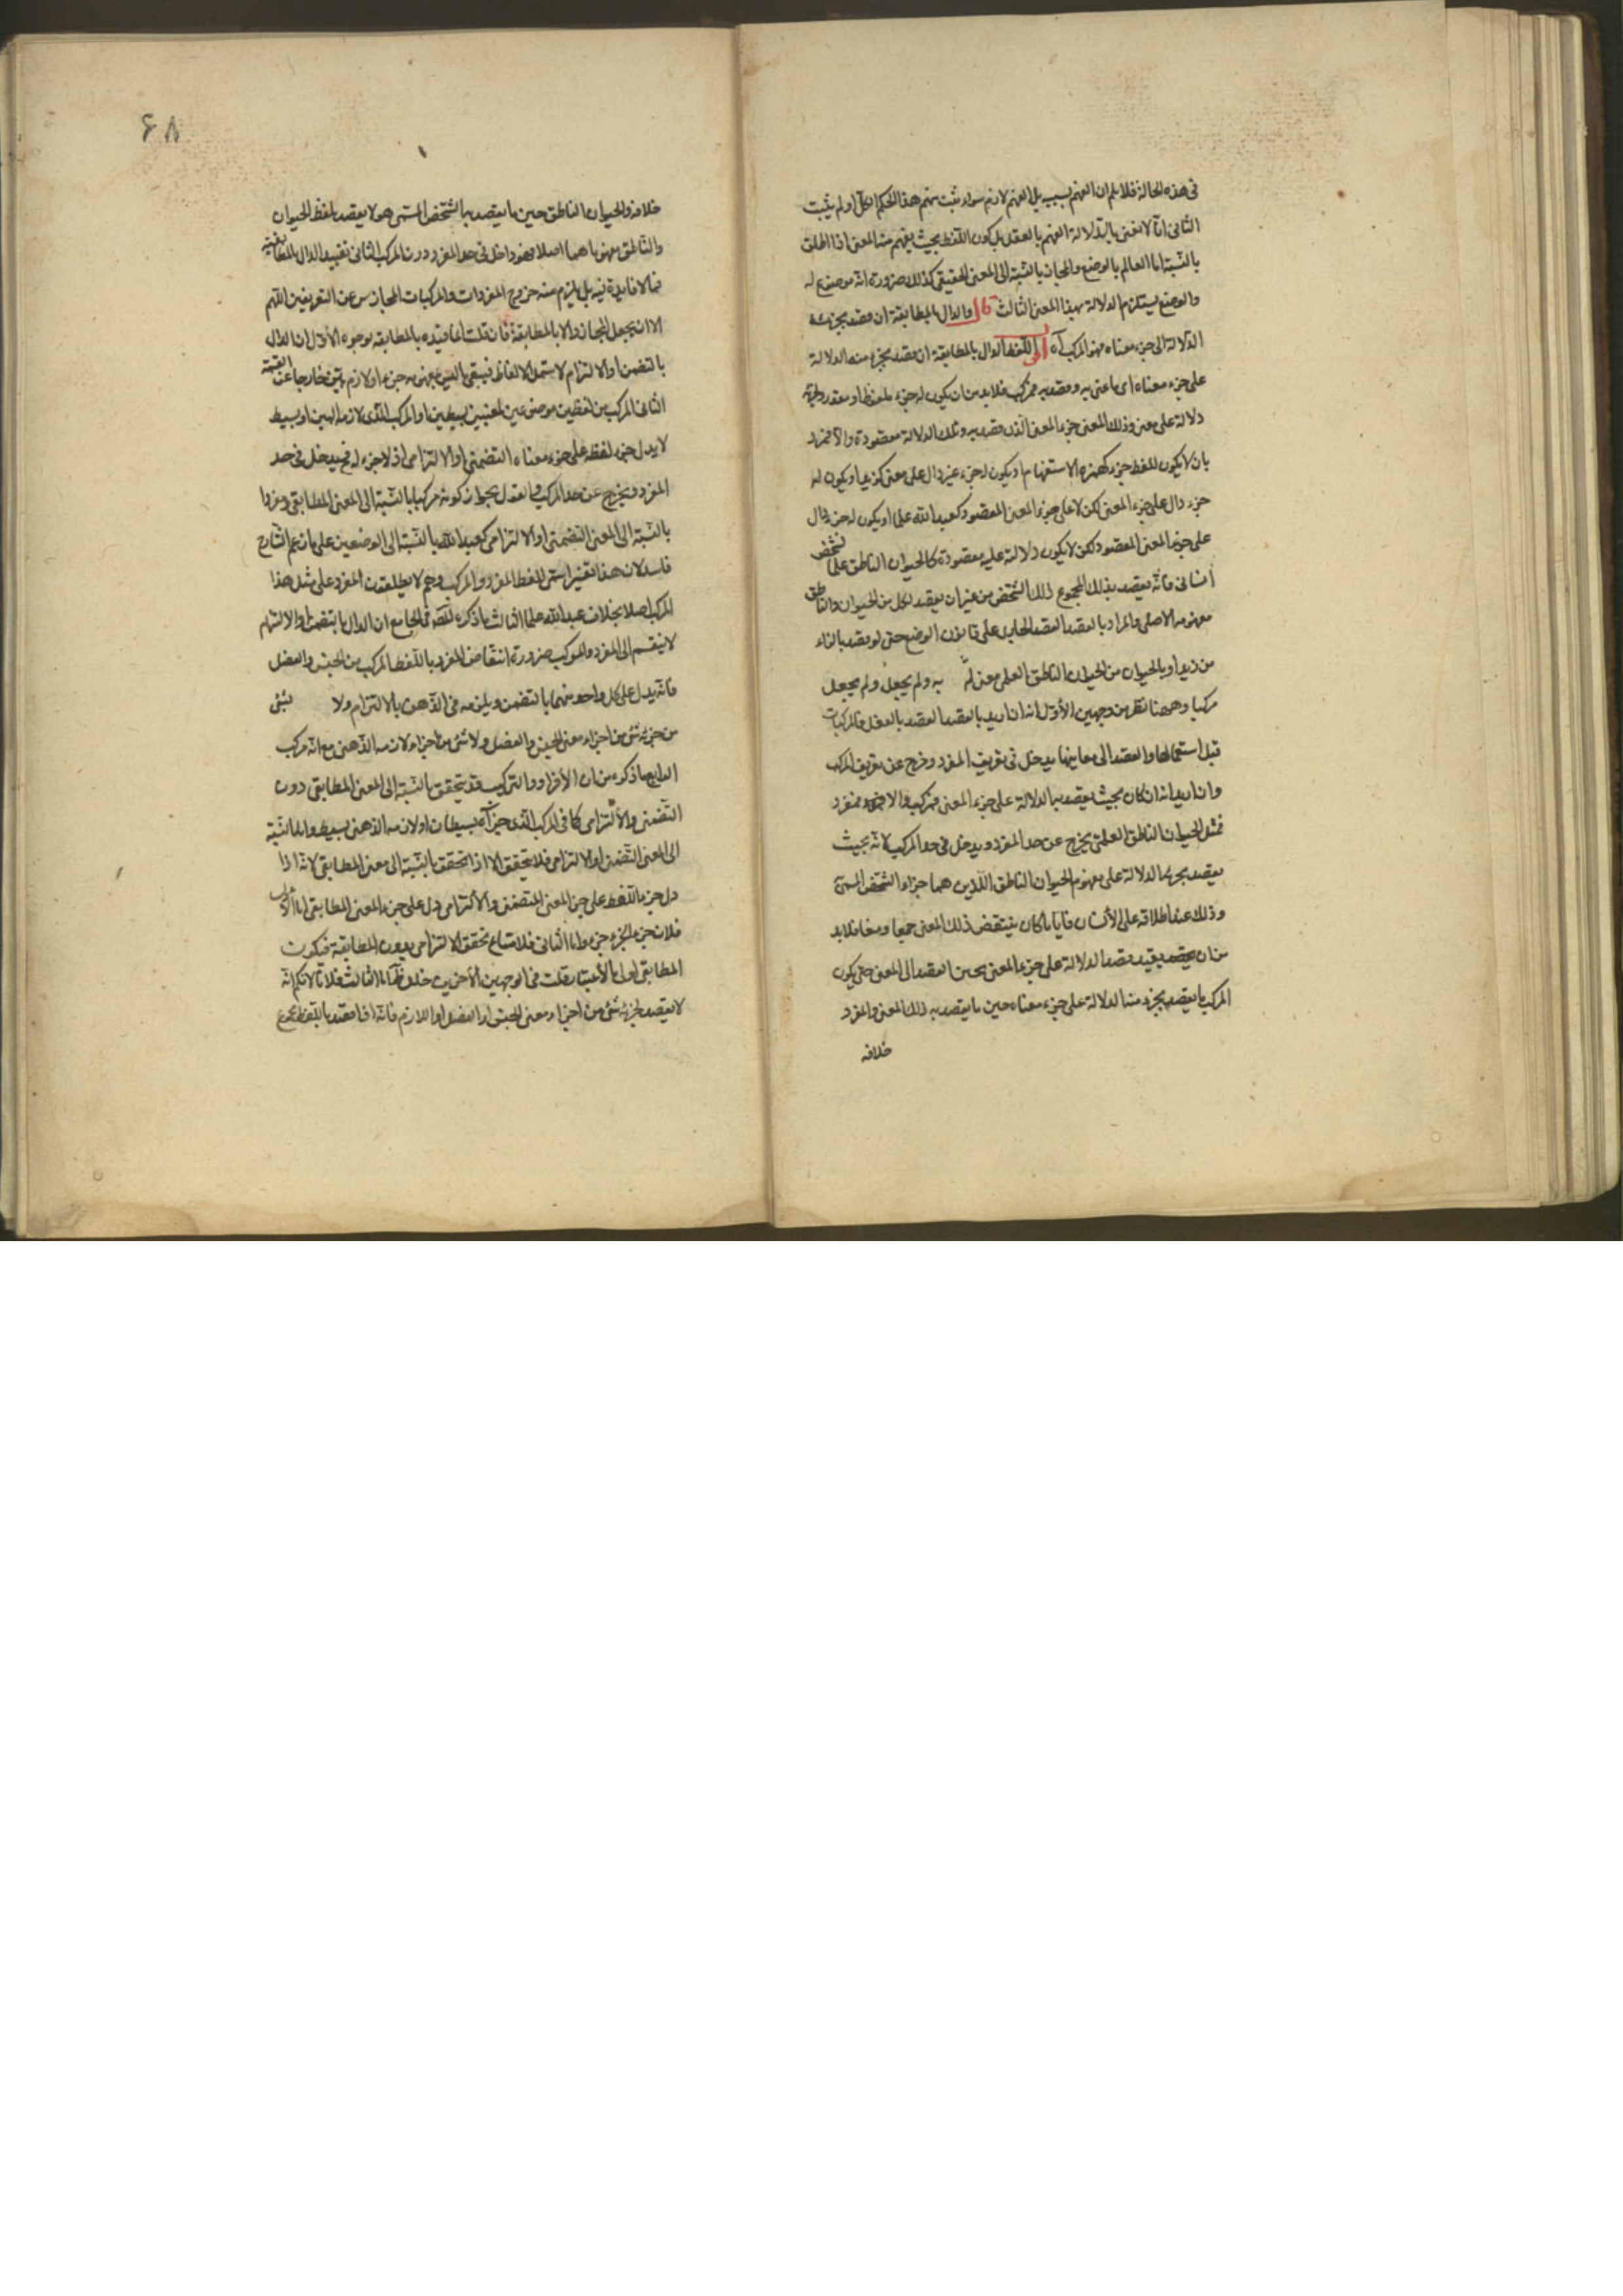 في هذه الحالة فلا يلم ان الفهم بسببه بل الفهم لازم سواء ثبت منهم هذا الحكم الكل او لم يثبت
الثاني انا لا نعنى بالدلالة الفهم بالفعل بل كون اللفظ بحيث يفهم منه المعنى اذا اطلق
بالنسبة الى العالم بالوضع والمجاز بالنسبة الى المعنى الحقيقي كذلك ضرورة انه موضوع له
والوضع يستلزم الدلالة بهذا المعنى الثالث قال والدال بالمطابقة ان قصد بجزئه
الدلالة الى جزء معناه فهو المركب آه اقول اللفظ الدال بالمطابقة ان قصد بجزء منه الدلالة
على جزء معناه اى ما عنى به وقصد به فمركب فلا بد من ان يكون له جزء ملفوظ او مقدر ولجزئه
دلالة على معنى وذلك المعنى جزء المعنى الذى قصد به وتلك الدلالة مقصودة والا فمفرد
بان لا يكون للفظ جزء كهمزة الاستفهام او يكون له جزء غير دال على معنى كزيد او يكون له
جزء دال على جزء المعنى لكن لا على جزء المعنى المقصود كعبد الله علما او يكون له جزء دال
على جزء المعنى المقصود لكن لا يكون دلالة عليه مقصودة كالحيوان الناطق علما لشخص
انسانى فانه يقصد بذلك المجموع ذلك الشخص من غير ان يقصد لكل من الحيوان والناطق
مفهومه الاصلى والمراد بالقصد القصد الجارى على قانون الوضع حتى لو قصد بالزاء
من زيد او بالحيوان من الحيوان الناطق العلم معنى لم به ولم يجعل ولم يجعل
مركبا وههنا نظر من وجهين الأوّل انه ان اريد بالقصد القصد بالفعل فالمركبات
قبل استعمالها والقصد الى معاينها يدخل في تعريف المفرد وخرج عن تعريف المركب
وان اريد انه ان كان بحيث يقصد به الدلالة على جزء المعنى فمركب والا فمفرد
فمثل الحيوان الناطق العلمى يخرج عن حد المفرد ويدخل في حد المركب لانه بحيث
يقصد بجزئه الدلالة على مفهوم الحيوان الناطق اللذين هما جزاء الشخص المسمى
وذلك عند اطلاقه على الأنسان فايا ما كان ينتقض ذلك المعنى جمعا ومنعا فلا بد
من ان يقيد قصد الدلالة على جزء المعنى بحين القصد الى المعنى حتى يكون
المركب ما يقصد بجزء منه الدلالة على جزء معناه حين ما يقصد به ذلك المعنى والمفرد
خلافه
٤٨
خلافه والحيوان الناطق حين ما يقصد به الشخص المسمى هو لا يقصد بلفظ الحيوان
والناطق مفهوماهما اصلا فهو داخل في حد المفرد دون المركب الثاني تقييد الدال بالمطابقة
مما لا فايدة فيه بل يلزم منه خروج المفردات والمركبات المجازية عن التعريفين اللهم
الا ان يجعل المجاز دالا بالمطابقة فان قلت انما قيده بالمطابقة لوجوه الأوّل ان الدال
بالتضمن او الالتزام لا يشمل الالفاظ فيبقى ما ليس لمفهومه جزء او لازم بيّن خارجا عن القسمة
الثانى المركب من لفظين موضوعين لمعنيين بسيطين او المركب الذى لازمه البين او بسيط
لا يدل جزء لفظه على جزء معناه التضمنى او الالتزامى اذ لا جزء له فح يدخل في حد
المفرد ويخرج عن حد المركب بجواز كونه مركبا بالنسبة الى المعنى المطابقى ومفردا
بالنسبة الى المعنى التضمنى او الالتزامى كعبد الله بالنسبة الى الوضعين على ما زعم الشارح
فاسد لان هذا تفسير اسمى للفظ المفرد والمركب وهم لا يطلقون المفرد على مثل هذا
المركب اصلا بخلاف عبد الله علما الثالث ما ذكره المص في الجامع ان الدال بالتضمن او الالتزام
لا ينقسم الى المفرد والمركب ضرورة انتقاض المفرد باللفظ المركب من الجنس والفصل
فانه يدل على كل واحد منهما بالتضمن ويلزمه في الذهن بالالتزام ولا لشئ
من جزئه شئ من اجزاء معنى الجنس والفصل ولا شئ من اجزاء لازمه الذهنى مع انه مركب
الرابع ما ذكره من ان الأفراد والتركيب قد يتحقق بالنسبة الى المعنى المطابقى دون
التضمنى والألتزامى كما في المركب الذى جزآه بسيطان او لازمه الذهنى بسيط واما بالنسبة
الى المعنى التضمنى او الالتزامى فلا يتحقق الا اذا تحقق بالنسبة الى معنى المطابقى لانه اذا
دل جزء اللفظ على جزء المعنى التضمنى والألتزامى دل على جزء المعنى المطابقى اما الأول
فلان جزء الجزء جزء واما الثانى فلامتناع تحقق الالتزامى بدون المطابقة فيكون
المطابقى اولى بالأعتبار قلت في الوجهين الأخرين خلل ظ اما الثالث فلانا لا نكم انه
لا يقصد لجزئه شئ من اجزاء معنى الجنس او الفصل او اللازم فانه اذا قصد باللفظ مجموع